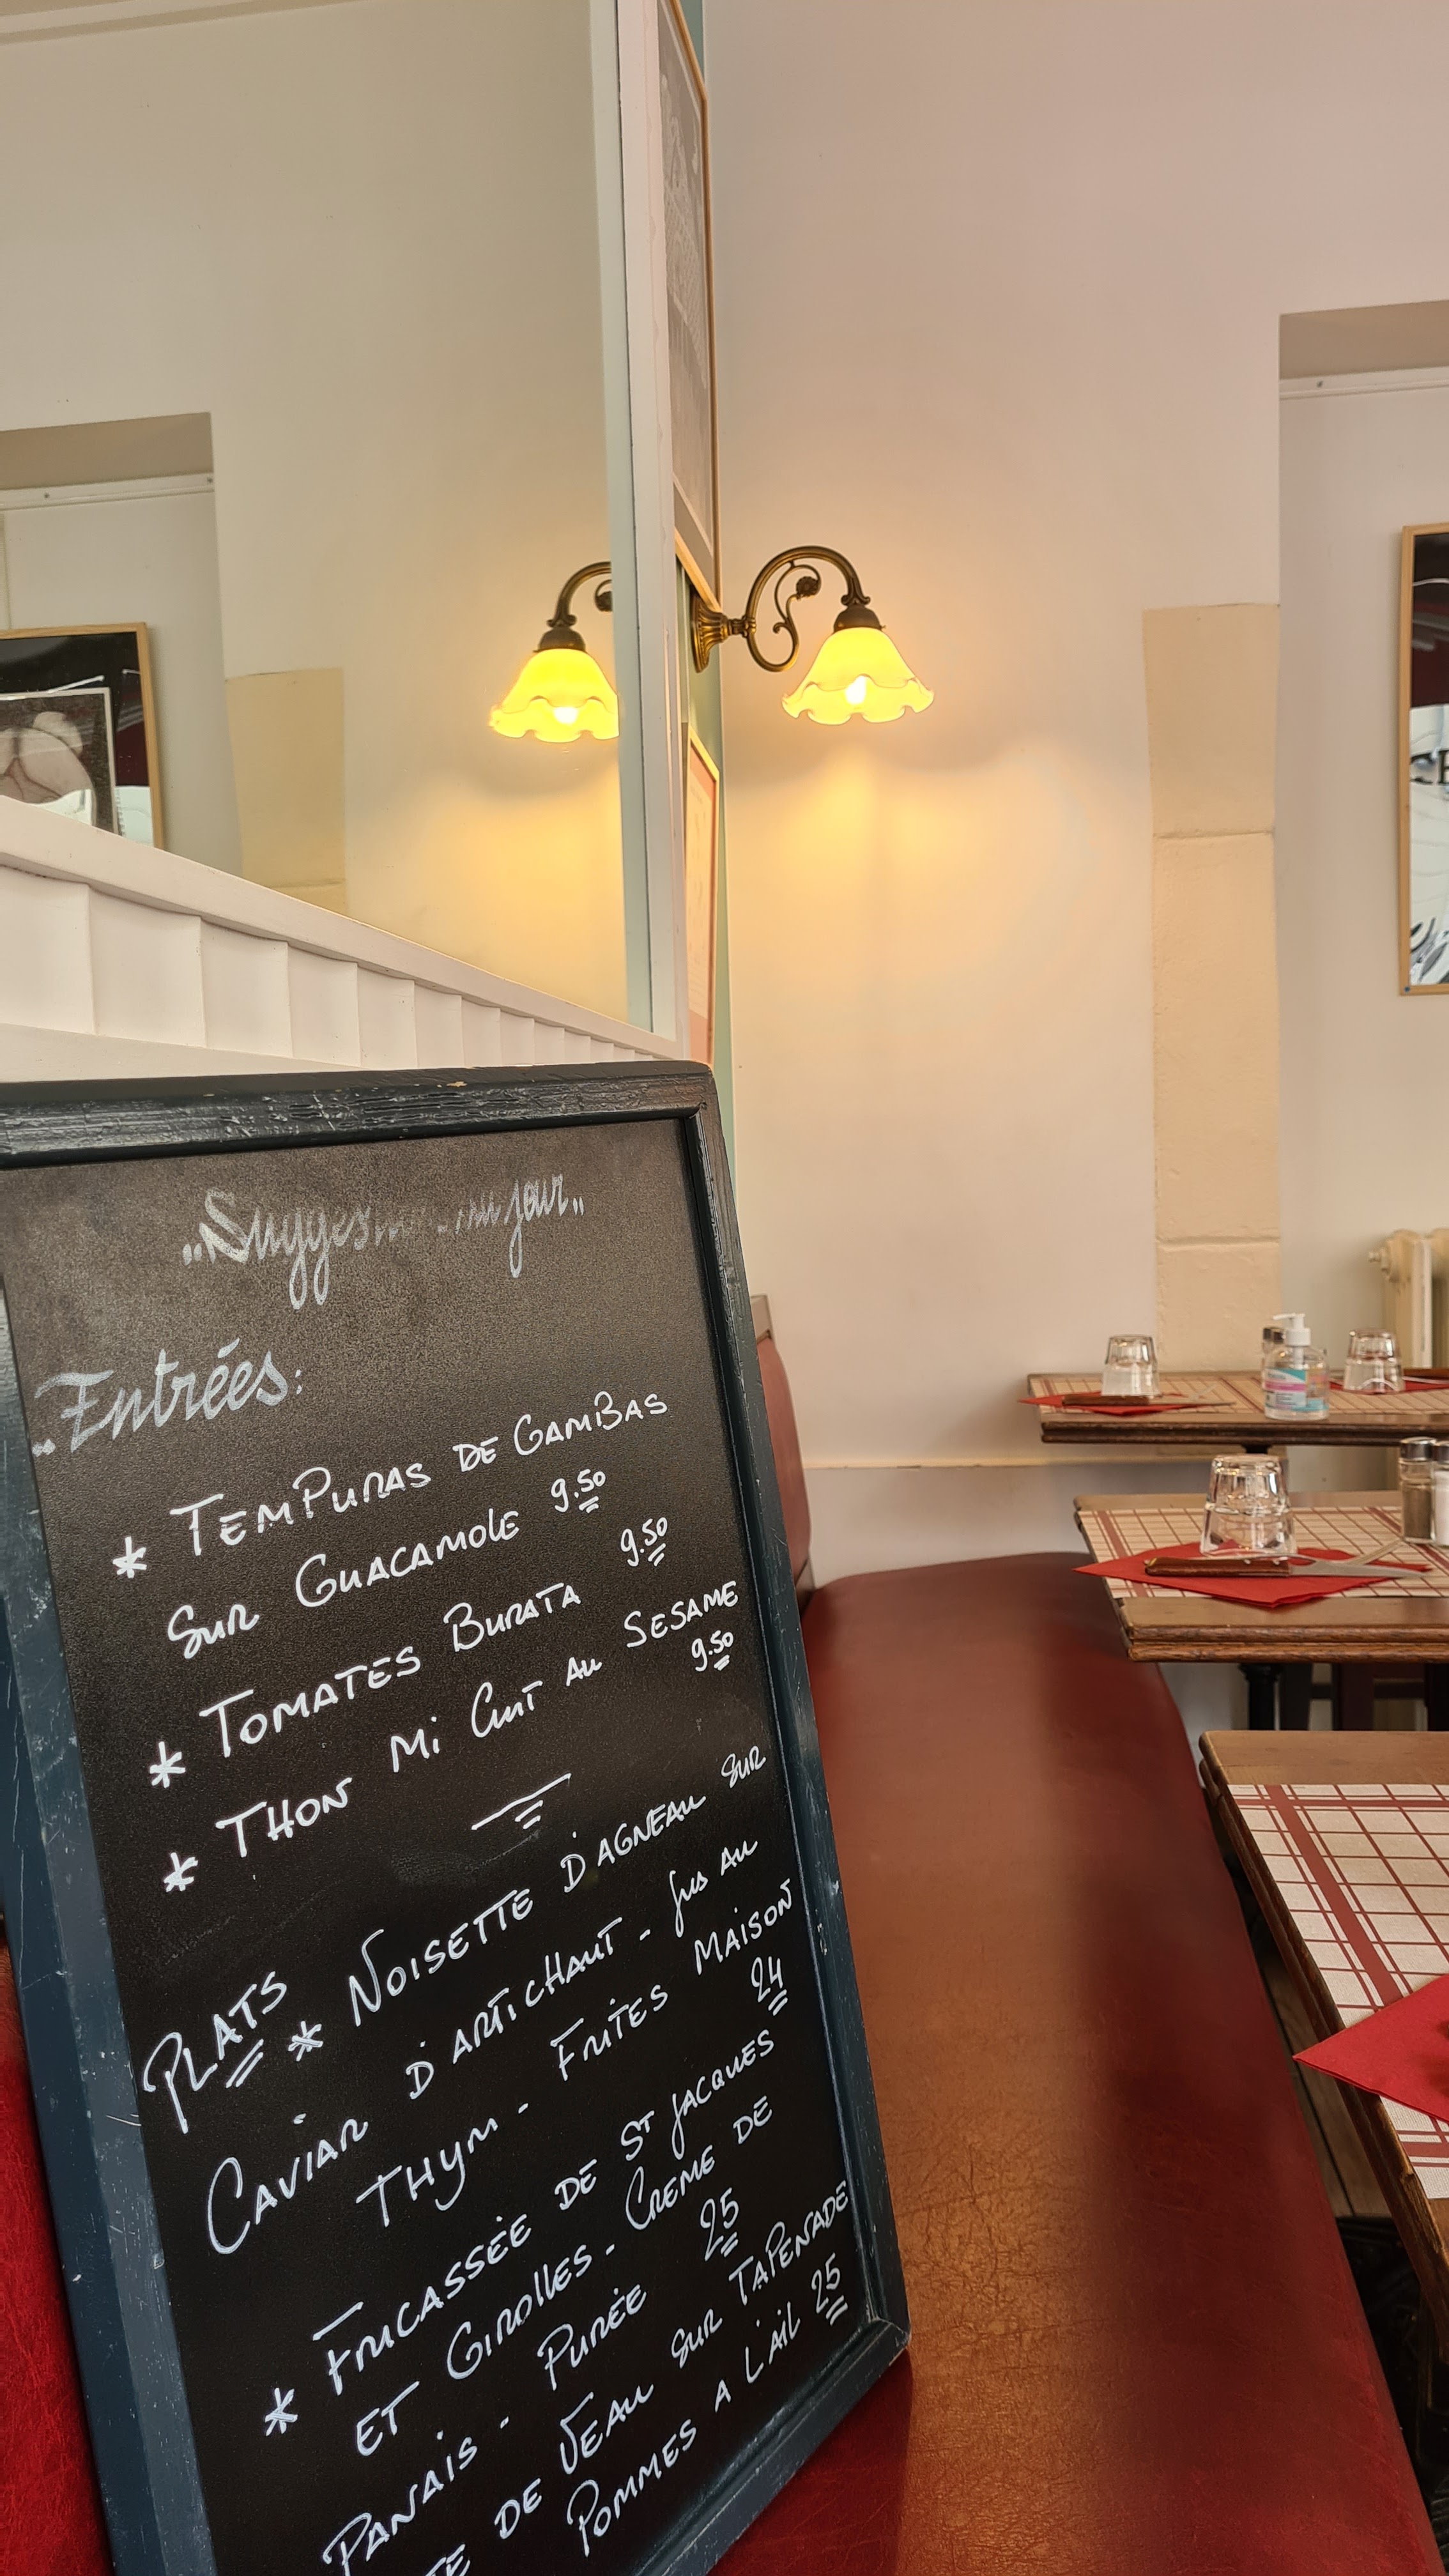 „Sugges... du jour„
„Entrées:
* TEMPURAS DE GAMBAS
SUR GUACAMOLE 9.50
* TOMATES BURATA 9.50
* THON Mi CUIT AU SESAME
9.50
PLATS
* NOISETTE D'AGNEAU SUR
CAVIAR D'ARTICHAUT - JUS AU
THYM - FRITES MAISON
24
* FRICASSÉE DE ST JACQUES
ET GIROLLES - CREME DE
PANAIS - PURÉE 25
DE VEAU SUR TAPENADE
POMMES A L'AIL 25